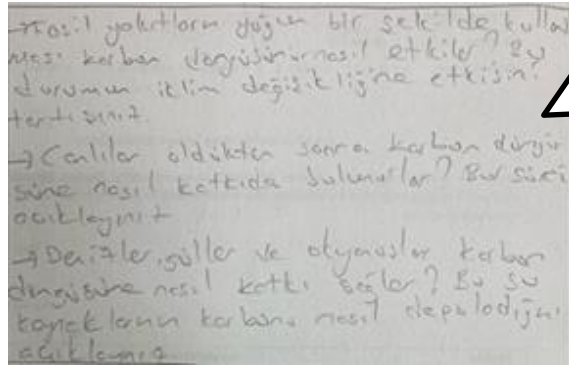 →Fosil yakıtların yoğun bir şekilde kullan
ması karbon döngüsünü nasıl etkiler? Bu
durumun iklim değişikliğine etkisini
tartışınız.
→Canlılar öldükten sonra karbon döngü
süne nasıl katkıda bulunurlar? Bu süreci
açıklayınız
→Denizler, göller ve okyanuslar karbon
döngüsüne nasıl katkı sağlar? Bu su
kaynaklarının karbonu nasıl depoladığını
açıklayınız